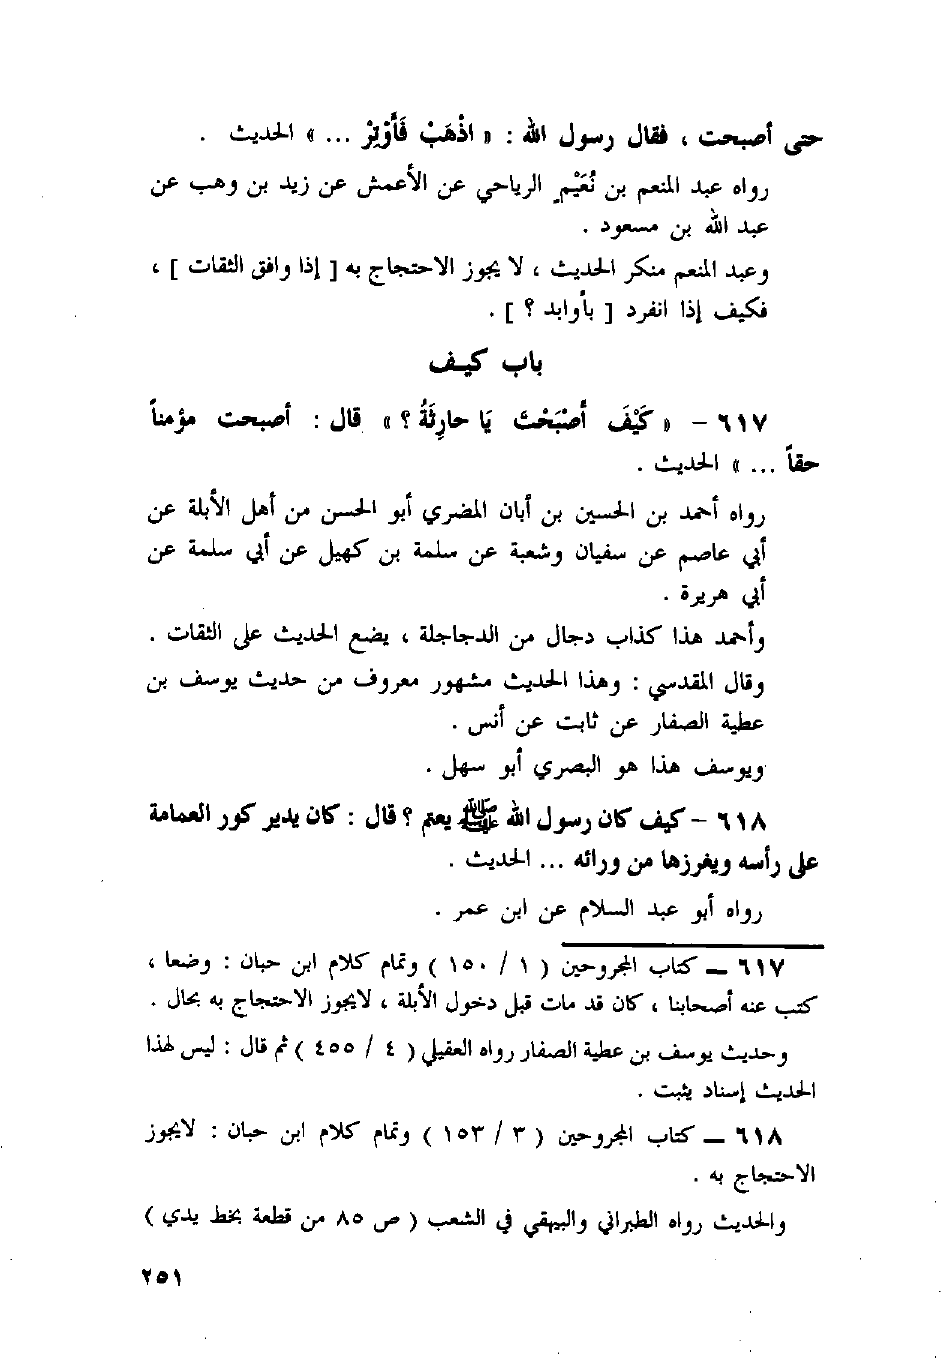 حتى أصبحت ، فقال رسول الله : « اذْهَبْ فَأَوْتِرْ ... » الحديث .
رواه عبد المنعم بن نُعَيْمٍ الرياحي عن الأعمش عن زيد بن وهب عن
عبد الله بن مسعود .
وعبد المنعم منكر الحديث ، لا يجوز الاحتجاج به [ إذا وافق الثقات ] ،
فكيف إذا انفرد [ بأوابد ؟ ] .
باب كيف
٦١٧ – « كَيْفَ أَصْبَحْتَ يَا حارِثَةُ ؟ » قال : أصبحت مؤمناً
حقاً ... » الحديث .
رواه أحمد بن الحسين بن أبان المضري أبو الحسن من أهل الأبلة عن
أبي عاصم عن سفيان وشعبة عن سلمة بن كهيل عن أبي سلمة عن
أبي هريرة .
وأحمد هذا كذاب دجال من الدجاجلة ، يضع الحديث على الثقات .
وقال المقدسي : وهذا الحديث مشهور معروف من حديث يوسف بن
عطية الصفار عن ثابت عن أنس .
ويوسف هذا هو البصري أبو سهل .
٦١٨ – كيف كان رسول الله ﷺ يعتم ؟ قال : كان يدير كور العمامة
على رأسه ويغرزها من ورائه ... الحديث .
رواه أبو عبد السلام عن ابن عمر .
٦١٧ – كتاب المجروحين ( ١ / ١٥٠ ) وتمام كلام ابن حبان : وضعا ،
كتب عنه أصحابنا ، كان قد مات قبل دخول الأبلة ، لايجوز الاحتجاج به بحال .
وحديث يوسف بن عطية الصفار رواه العقيلي ( ٤ / ٤٥٥ ) ثم قال : ليس لهذا
الحديث إسناد يثبت .
٦١٨ – كتاب المجروحين ( ٣ / ١٥٣ ) وتمام كلام ابن حبان : لايجوز
الاحتجاج به .
والحديث رواه الطبراني والبيهقي في الشعب ( ص ٨٥ من قطعة بخط يدي )
٢٥١